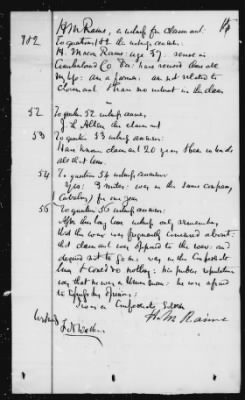 H M Raine, a witness for claimant:
To question 1 & 2 the witness answers:
H. Macon Raine: age 37: reside in
Cumberland Co Va: have resided here all
my life: am a farmer: am not related to
claimant & have no interest in the claim
52 To question 52 witness answers,
J. L. Allen the claimant
53 To question 53 witness answers:
Have known claimant 20 years & have resided
all that time.
54 To question 54 witness answers:
Yes: 3 miles: was in the same company
(Cavalry) for one year
56 To question 56 witness answers:
After this long time witness only remembers,
that the war was frequently conversed about:
that claimant was opposed to the war: and
desired not to go in: was in the Confederate
lines & could do nothing: his public reputation
was that he was a Union man: he was afraid
to express his opinions:
I was a Confederate Soldier
H. M. Raine